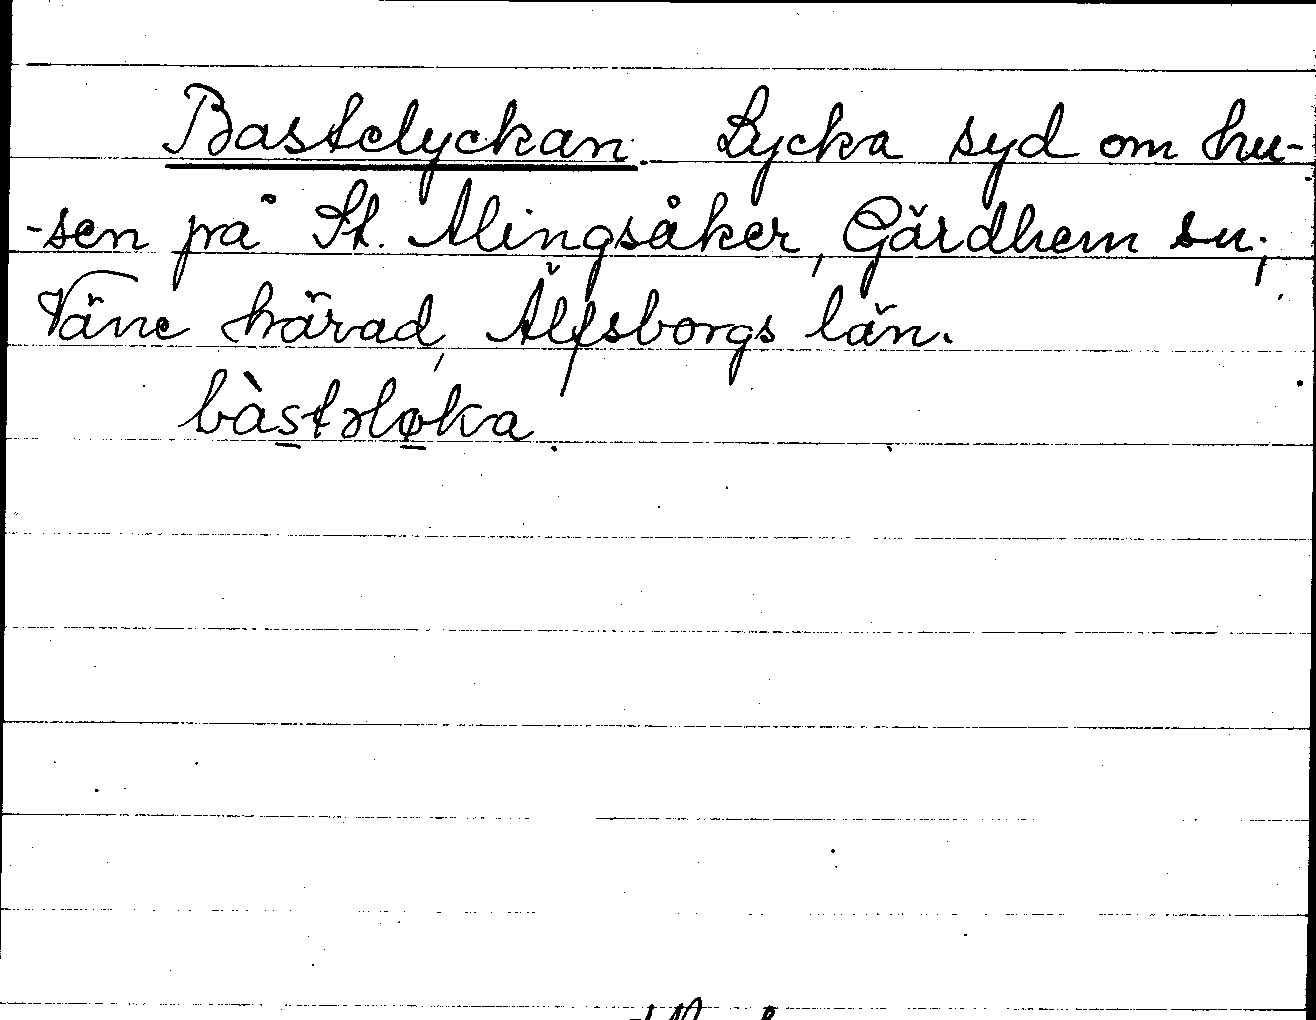 Bastelyckan. Lycka syd om hu-
-sen på St. Alingsåker, Gärdhem sn;
Väne härad, Älfsborgs län.
bàs̲təlø̲ka.